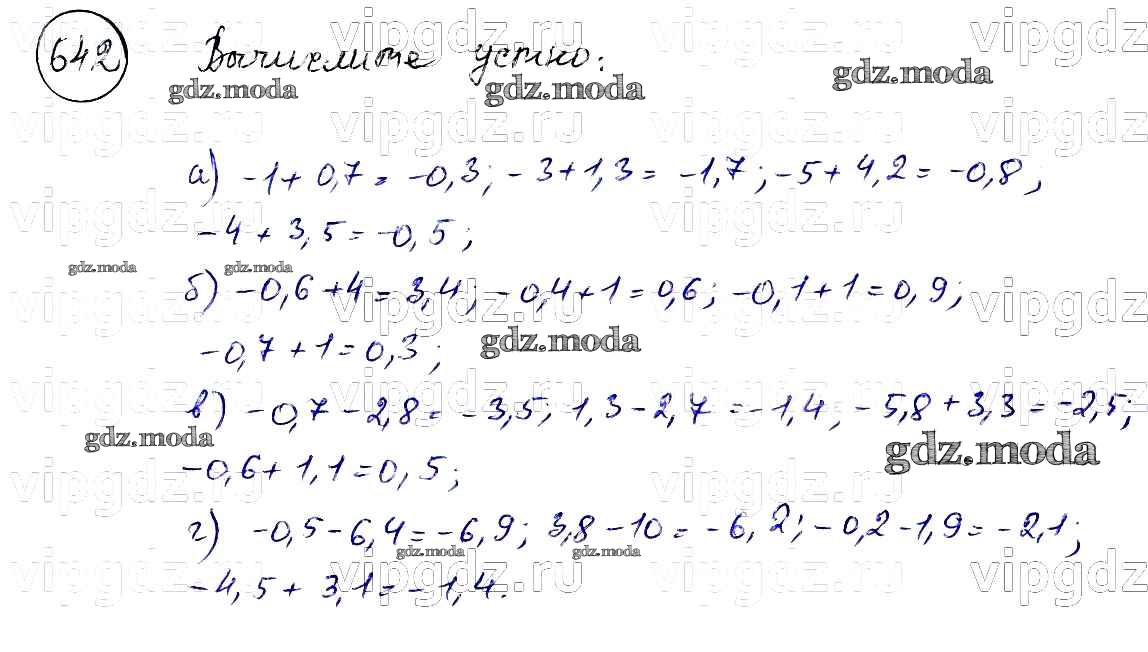 642 Вычислите устно:
а) -1 + 0,7 = -0,3; -3 + 1,3 = -1,7; -5 + 4,2 = -0,8;
-4 + 3,5 = -0,5;
б) -0,6 + 4 = 3,4; -0,4 + 1 = 0,6; -0,1 + 1 = 0,9;
-0,7 + 1 = 0,3;
в) -0,7 - 2,8 = -3,5; 1,3 - 2,7 = -1,4; -5,8 + 3,3 = -2,5;
-0,6 + 1,1 = 0,5;
г) -0,5 - 6,4 = -6,9; 3,8 - 10 = -6,2; -0,2 - 1,9 = -2,1;
-4,5 + 3,1 = -1,4.
gdz.moda
vipgdz.ru